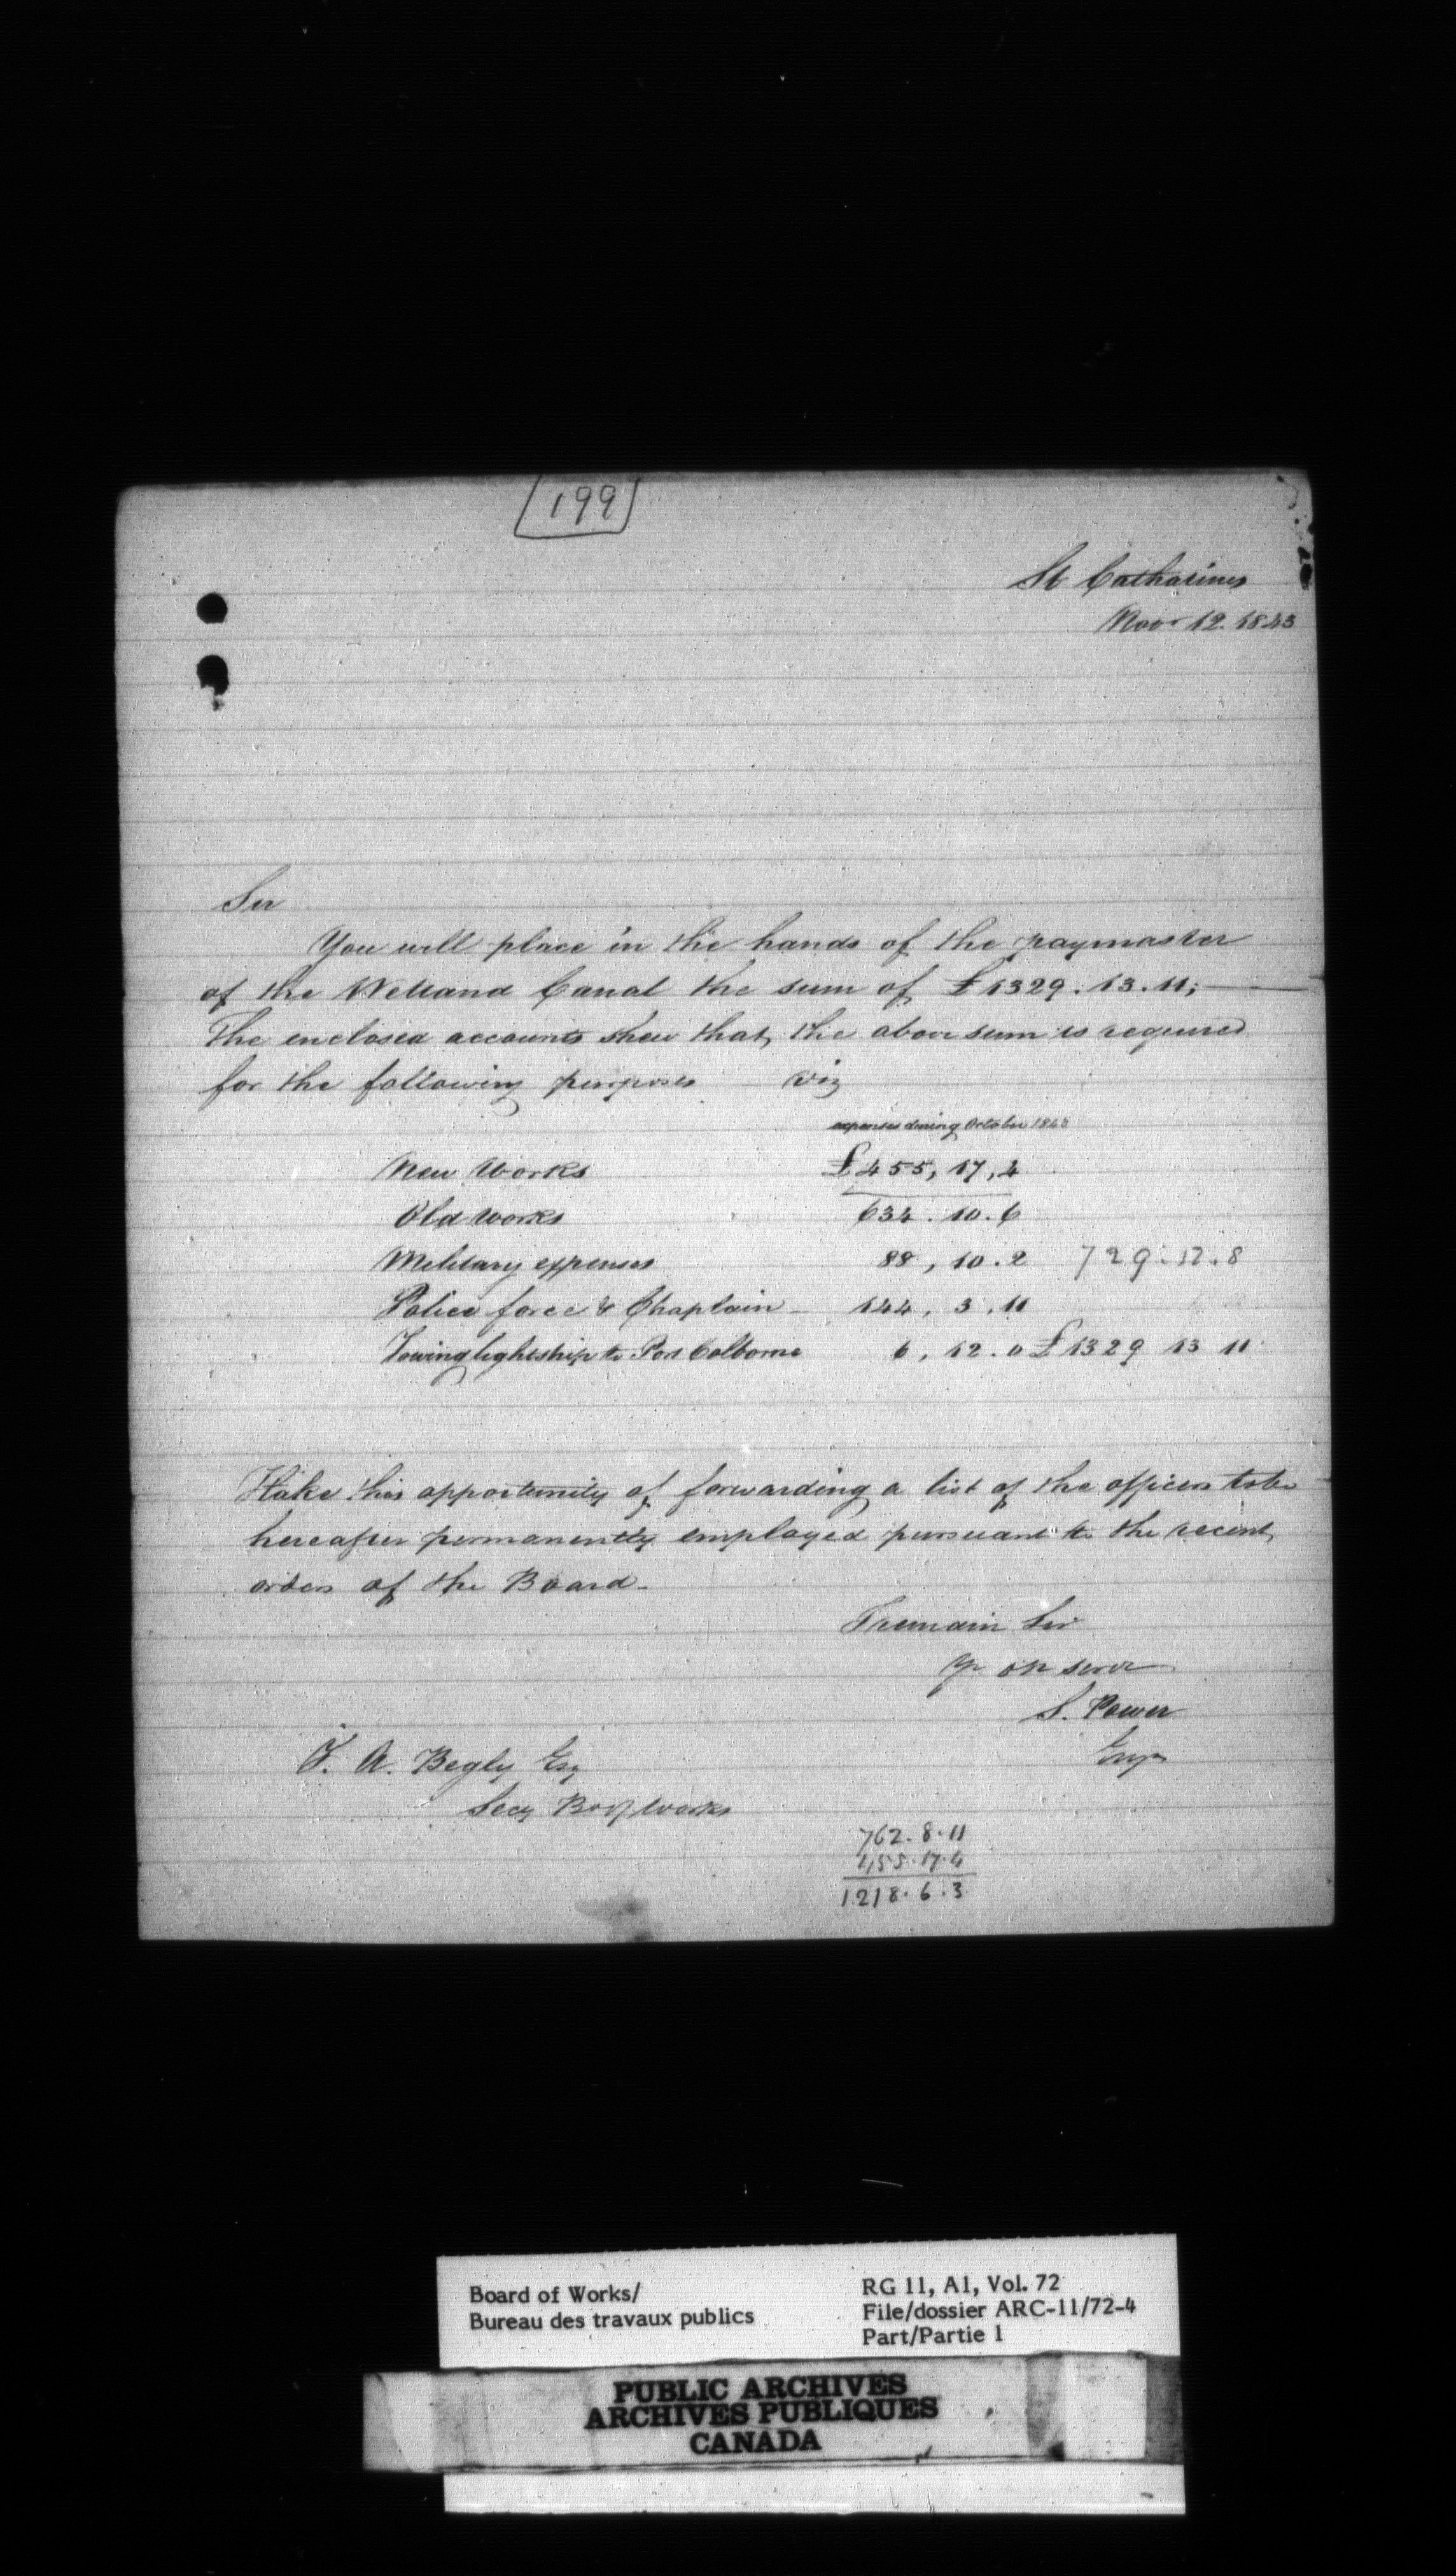 199
St Catharines
Novr 12. 1843
Sir
You will place in the hands of the paymaster
of the Welland Canal the sum of £1329.13.11;
The enclosed accounts shew that, the above sum is required
for the following purposes viz
expenses during October 1843
New Works £455,17,4
Old works 634.10.6
Military expenses 88,10.2 729.12.8
Police force & Chaplain 144,3,11
Towing lightship to Port Colborne 6,12.0 £1329 13 11
I take this opportunity of forwarding a list of the officers to be
hereafter permanently employed pursuant to the recent
orders of the Board
I remain Sir
yr ob servt
S. Power
Engr
T. A. Begly Esq
Secy Bd of Works
762.8.11
455.17.4
1218.6.3
Board of Works/
Bureau des travaux publics
RG 11, A1, Vol. 72
File/dossier ARC-11/72-4
Part/Partie 1
PUBLIC ARCHIVES
ARCHIVES PUBLIQUES
CANADA